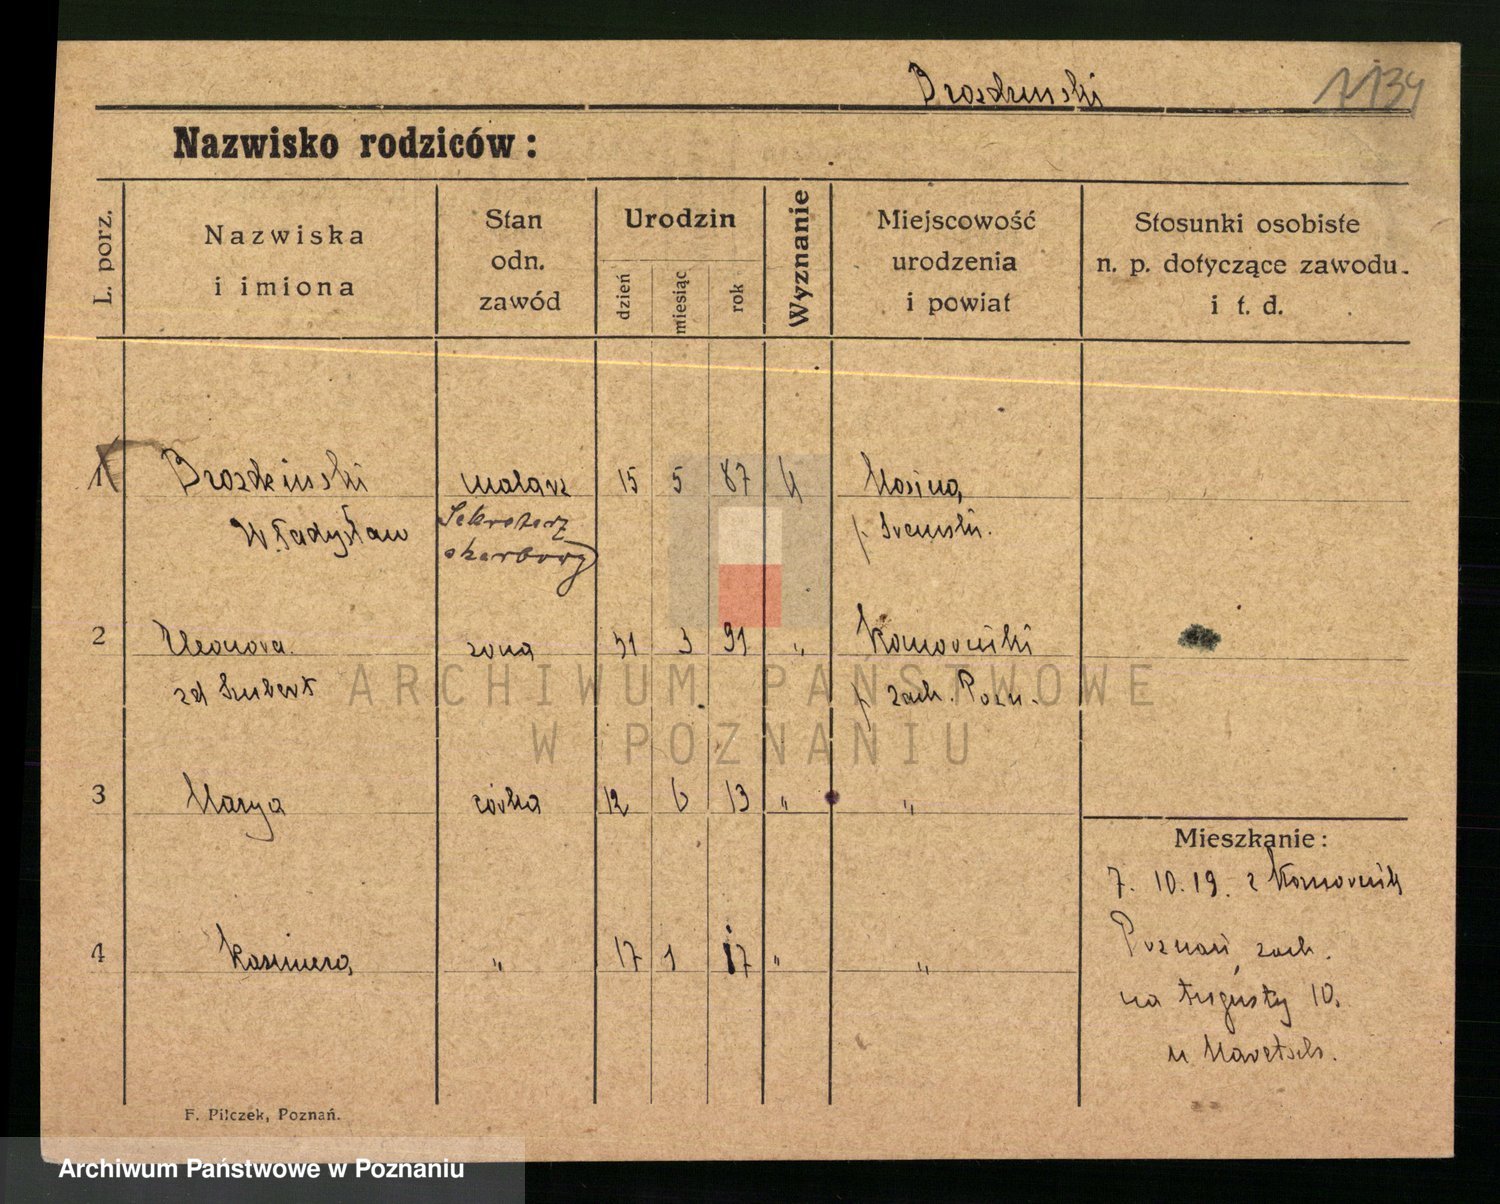 Brozdzinski
Nazwisko rodziców:
L. porz.
Nazwiska
i imiona
Stan
odn.
zawód
Urodzin
dzień
miesiąc
rok
Wyznanie
Miejscowość
urodzenia
i powiat
Stosunki osobiste
n. p. dotyczące zawodu
i t. d.
1 malarz 15 5 87 k Mosina
Władysław Sekretarz p. Sremski.
skarbowy
2 Eleonora. zona 3 91 " Komorniki
zd Szubert p zach. Pozn.
3 Marya córka 12 6 13 " "
4 Kazimera " 17 1 17 " "
Mieszkanie:
7. 10. 19. z Komornik
Poznań, zach.
na Augusty 10.
F. Pilczek, Poznań.
ARCHIWUM PAŃSTWOWE
W POZNANIU
Archiwum Państwowe w Poznaniu